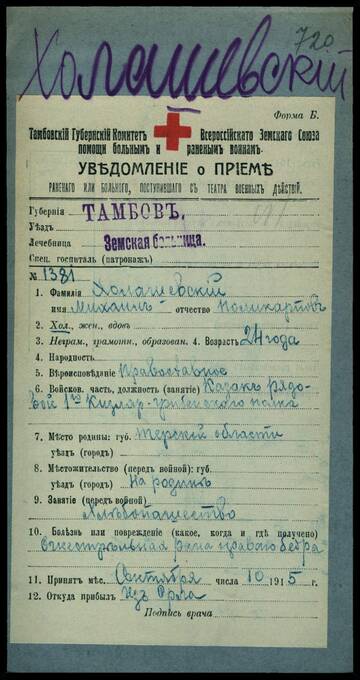 720
Холашевскій
Форма Б.
Тамбовскій Губернскій Комитетъ Всероссійскаго Земскаго Союза
помощи больнымъ и раненымъ воинамъ.
УВѢДОМЛЕНІЕ о ПРІЕМѢ
РАНЕНАГО ИЛИ БОЛЬНОГО, ПОСТУПИВШАГО СЪ ТЕАТРА ВОЕННЫХЪ ДѢЙСТВІЙ.
Губернія ТАМБОВЪ.
Уѣздъ
Лечебница Земская больница.
Спец. госпиталь (патронажъ)
№ 1381
1. Фамилія Холашевскій
имя Михаилъ отчество Поликарповъ
2. Хол., жен., вдов.
3. Неграм., грамотн., образован. 4. Возрастъ 24 года
4. Народность
5. Вѣроисповѣданіе Православное
6. Войсков. часть, должность (занятіе) Казакъ рядо-
вой 1го Кизляр-Гребенского полка
7. Мѣсто родины: губ. Терской области
уѣздъ (городъ)
8. Мѣстожительство (передъ войной): губ.
уѣздъ (городъ) На родинѣ
9. Занятіе (передъ войной)
Хлѣбопашество
10. Болѣзнь или поврежденіе (какое, когда и гдѣ получено)
Огнестрѣльная рана праваго бедра
11. Принятъ мѣс. Сентября числа 10 1915 г.
12. Откуда прибылъ Изъ Орла
Подпись врача